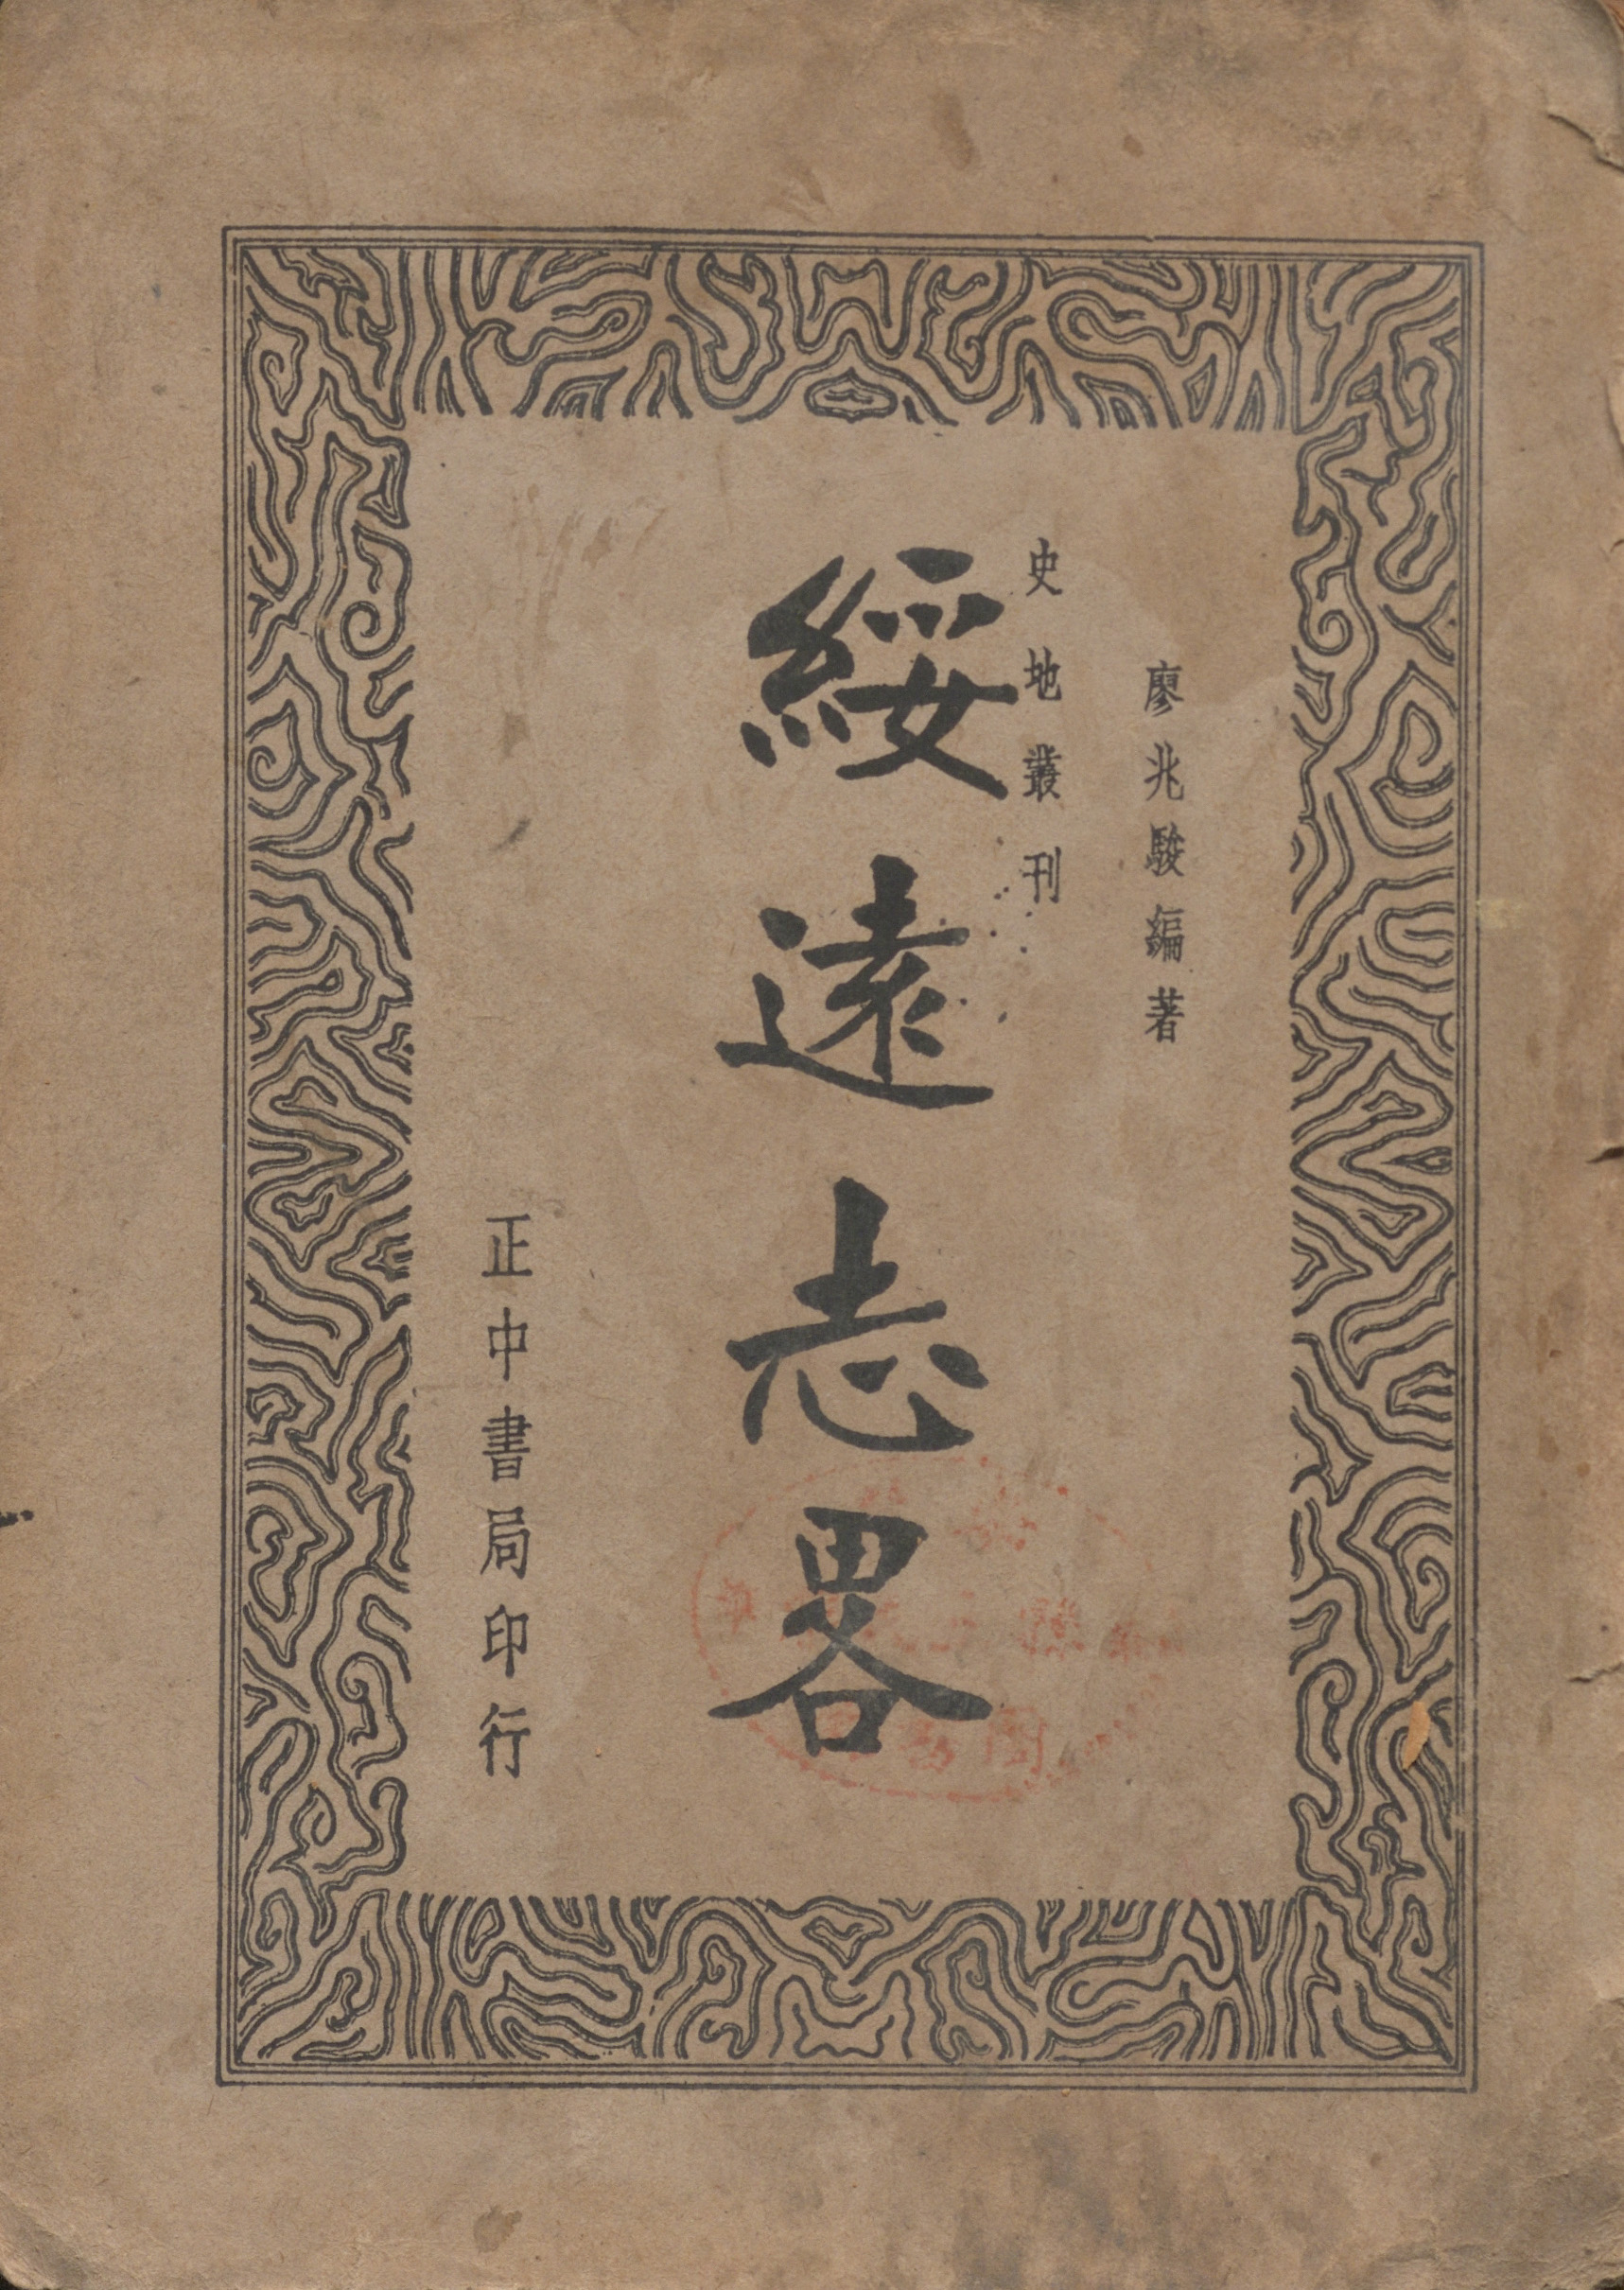 廖兆駿編著
史地叢刊
綏遠志畧
正中書局印行